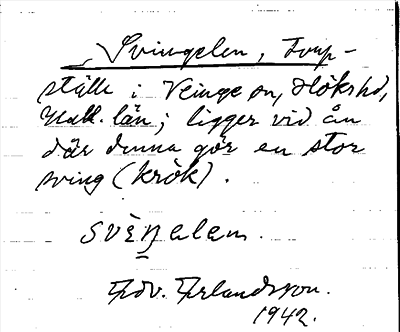 Svingelen, Torp-
ställe i Veinge sn, Höks hd,
Hall. län; ligger vid ån
där denna gör en stor
sving (krök).
svèŋelen.
Edv. Erlandsson.
1942.